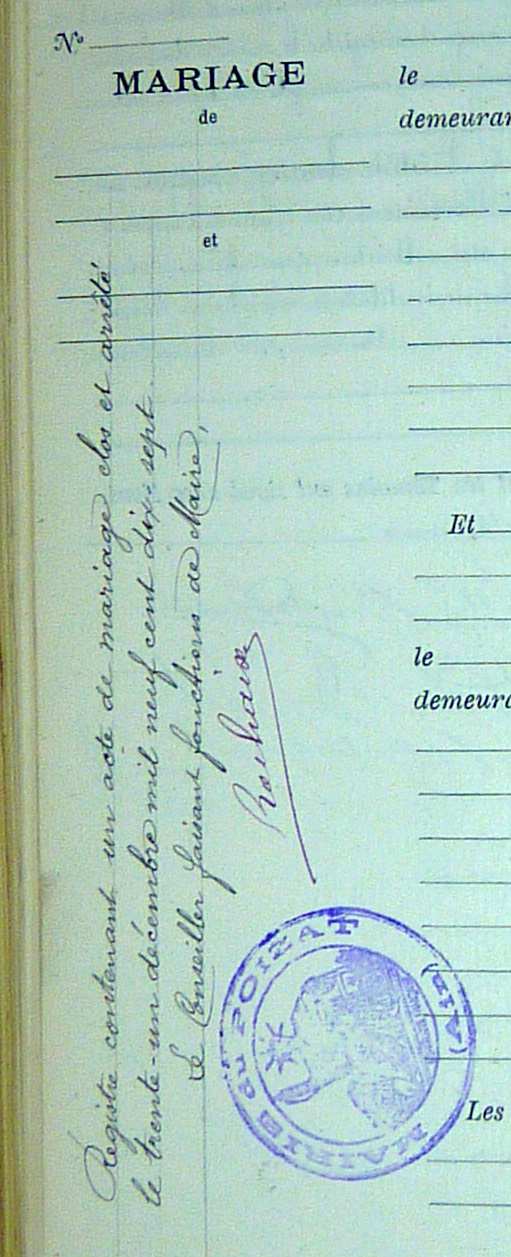 N°
MARIAGE
de
et
le
demeuran
Et
le
demeura
Les
Régistre contenant un acte de mariage clos et arrêté
le trente-un décembre mil neuf cent dix-sept.
Le Conseiller faisant fonctions de Maire,
MAIRIE du POIZAT (AIN)